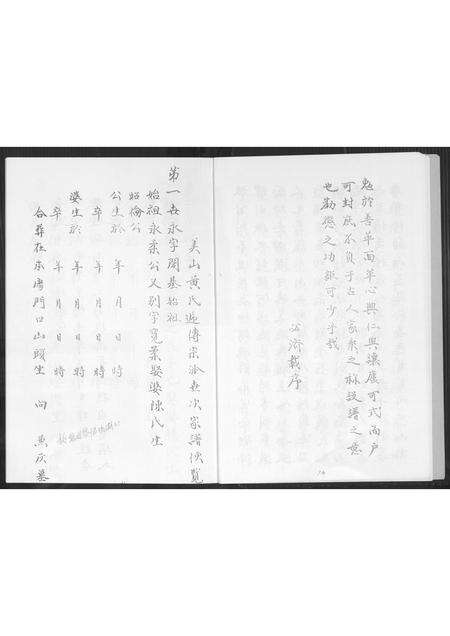 勉於善革面革心興仁興讓庶可式而戶
可封庶不負于古人家乘之
也勸懲之功詎可少乎哉
公濟載序
美山黃氏近傳宗派世次家譜便覽
第一世永字開基始祖
始祖永素公又別字寬柔娶婆陳氏生
昭倫公
公生於 年 月 日 時
卒 年 月 日 時
婆生於 年 月 日 時
卒 年 月 日 時
合葬在 門口山頭坐 向